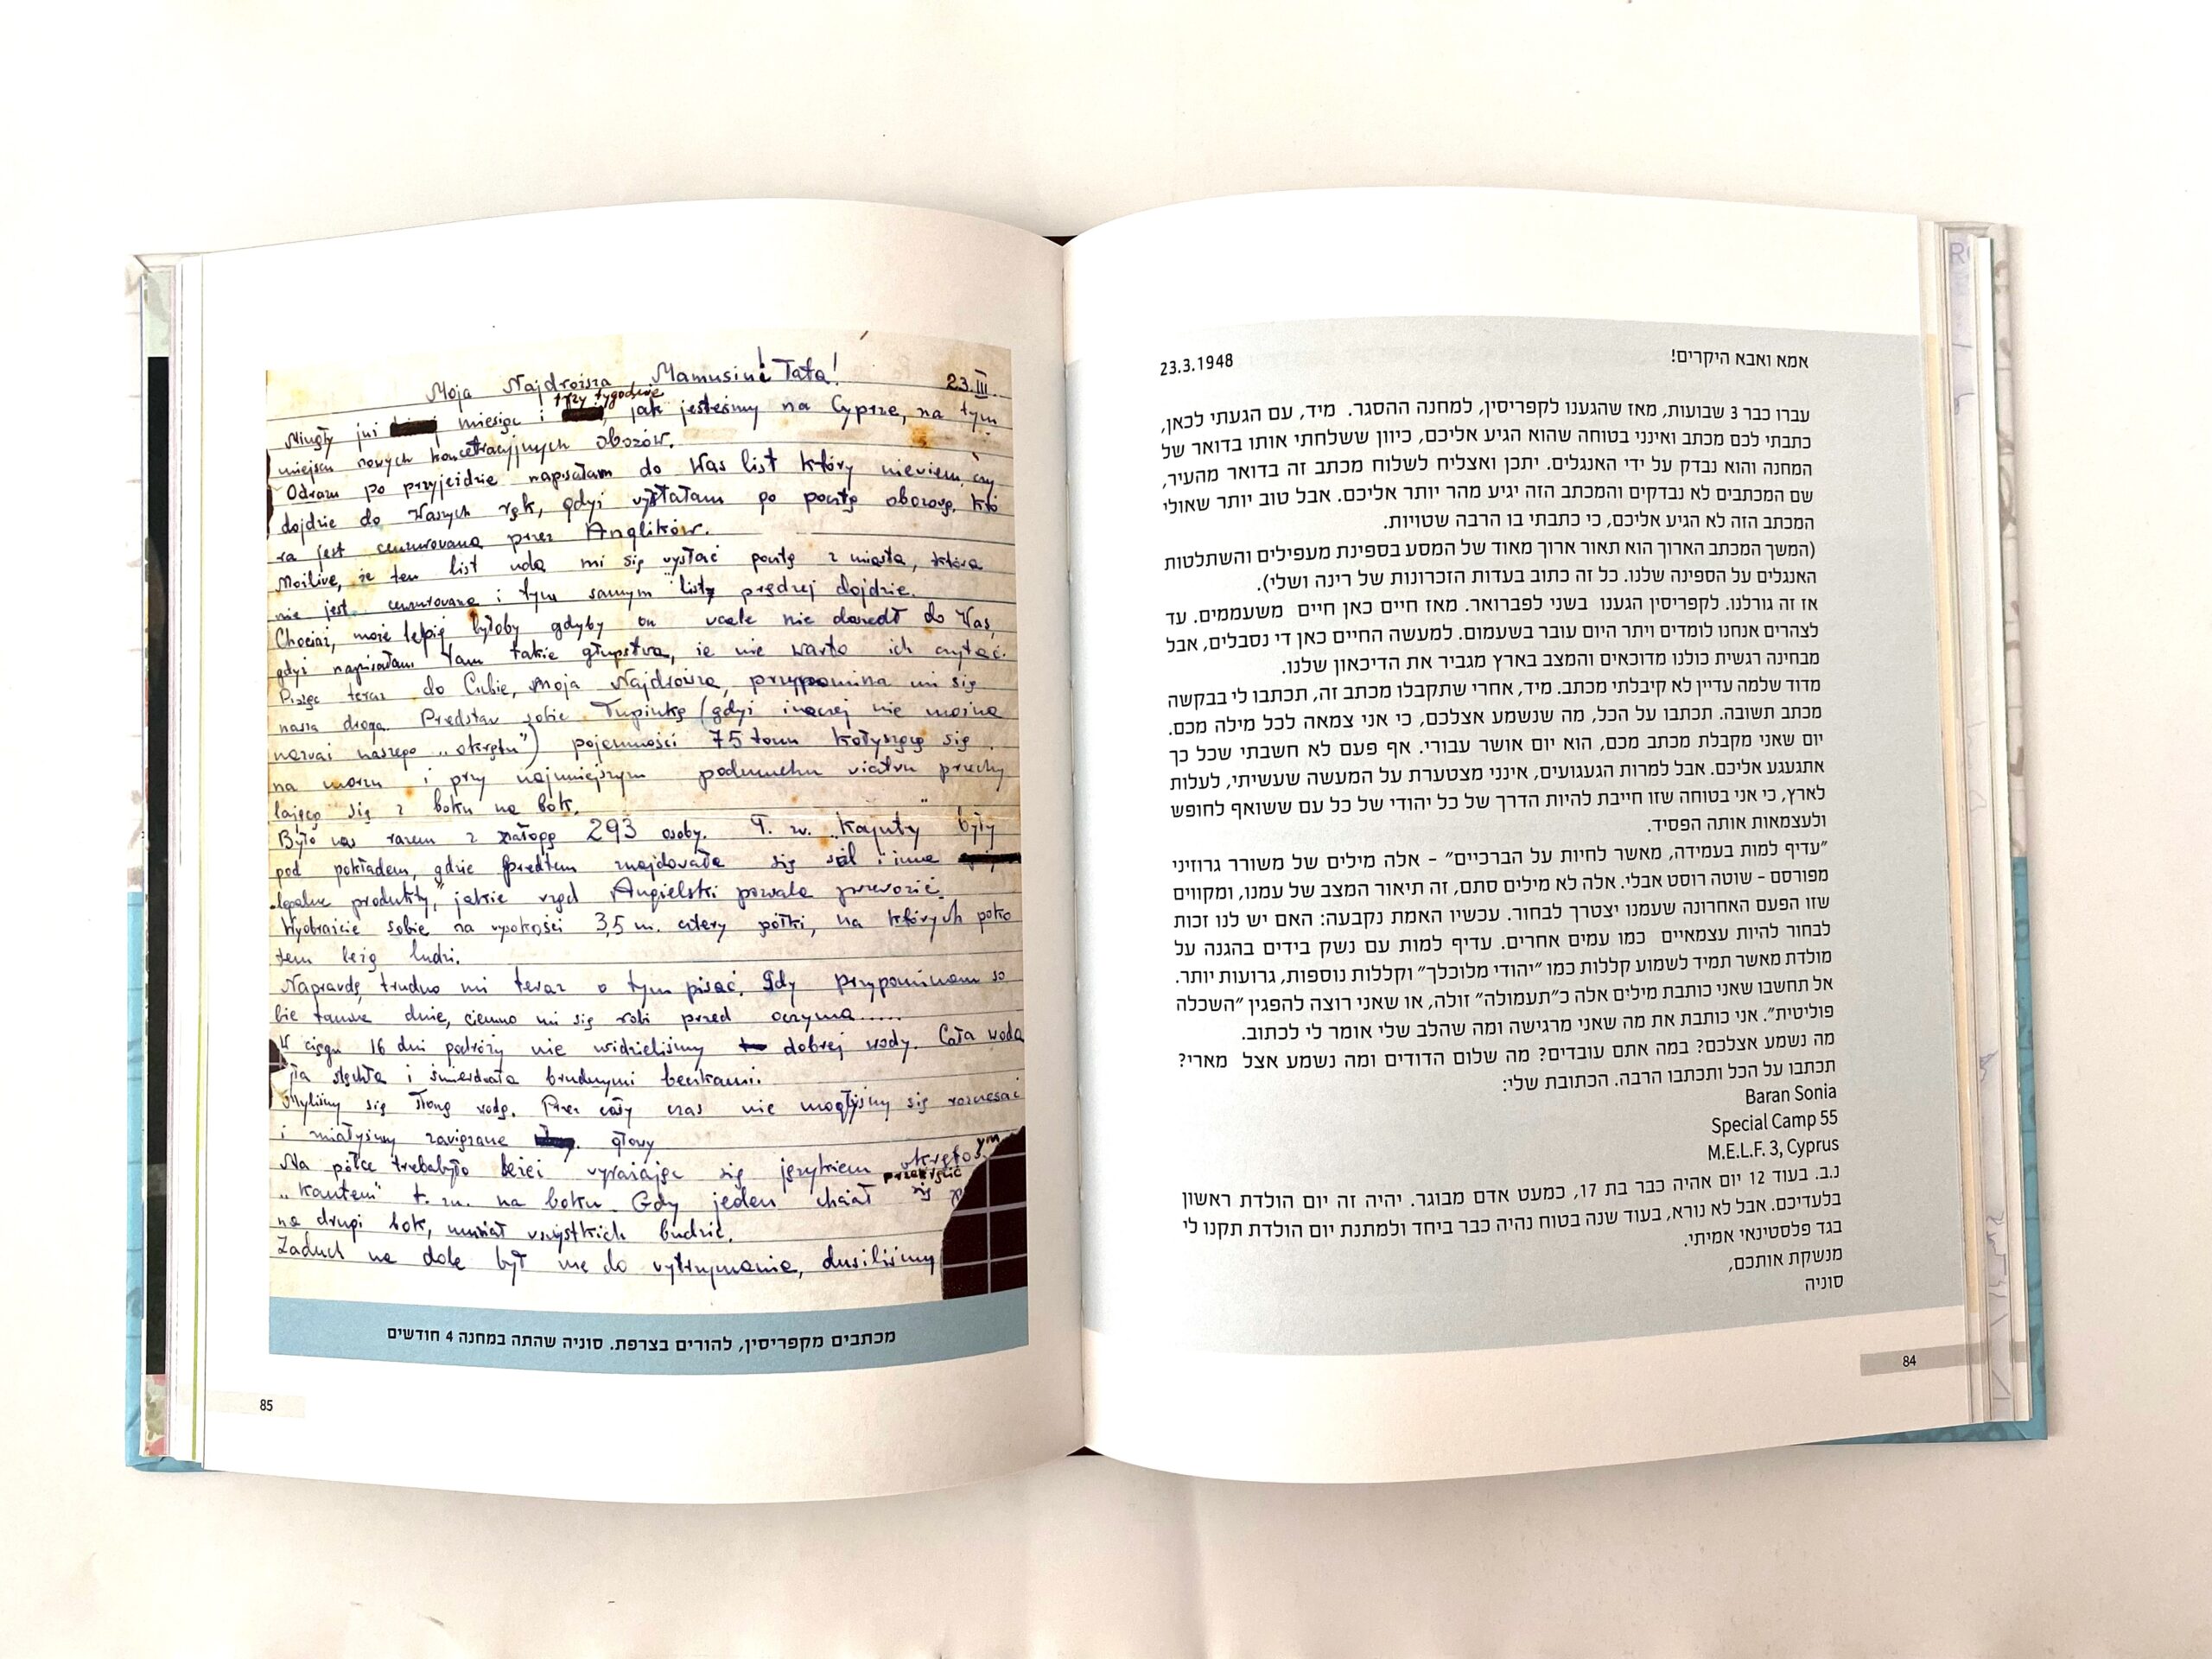 אמא ואבא היקרים!
23.3.1948
עברו כבר 3 שבועות, מאז שהגענו לקפריסין, למחנה ההסגר. מיד, עם הגעתי לכאן,
כתבתי לכם מכתב ואינני בטוחה שהוא הגיע אליכם, כיוון ששלחתי אותו בדואר של
המחנה והוא נבדק על ידי האנגלים. יתכן ואצליח לשלוח מכתב זה בדואר מהעיר,
שם המכתבים לא נבדקים והמכתב הזה יגיע מהר יותר אליכם. אבל טוב יותר שאולי
המכתב הזה לא הגיע אליכם, כי כתבתי בו הרבה שטויות.
(המשך המכתב הארוך הוא תאור ארוך מאוד של המסע בספינת מעפילים והשתלטות
האנגלים על הספינה שלנו. כל זה כתוב בעדות הזכרונות של רינה ושלי).
אז זה גורלנו. לקפריסין הגענו בשני לפברואר. מאז חיים כאן חיים משעממים. עד
לצהרים אנחנו לומדים ויתר היום עובר בשעמום. למעשה החיים כאן די נסבלים, אבל
מבחינה רגשית כולנו מדוכאים והמצב בארץ מגביר את הדיכאון שלנו.
מדוד שלמה עדיין לא קיבלתי מכתב. מיד, אחרי שתקבלו מכתב זה, תכתבו לי בבקשה
מכתב תשובה. תכתבו על הכל, מה שנשמע אצלכם, כי אני צמאה לכל מילה מכם.
יום שאני מקבלת מכתב מכם, הוא יום אושר עבורי. אף פעם לא חשבתי שכל כך
אתגעגע אליכם. אבל למרות הגעגועים, אינני מצטערת על המעשה שעשיתי, לעלות
לארץ, כי אני בטוחה שזו חייבת להיות הדרך של כל יהודי של כל עם ששואף לחופש
ולעצמאות אותה הפסיד.
"עדיף למות בעמידה, מאשר לחיות על הברכיים" – אלה מילים של משורר גרוזיני
מפורסם – שוטה רוסט אבלי. אלה לא מילים סתם, זה תיאור המצב של עמנו, ומקווים
שזו הפעם האחרונה שעמנו יצטרך לבחור. עכשיו האמת נקבעה: האם יש לנו זכות
לבחור להיות עצמאיים כמו עמים אחרים. עדיף למות עם נשק בידים בהגנה על
מולדת מאשר תמיד לשמוע קללות כמו "יהודי מלוכלך" וקללות נוספות, גרועות יותר.
אל תחשבו שאני כותבת מילים אלה כ"תעמולה" זולה, או שאני רוצה להפגין "השכלה
פוליטית". אני כותבת את מה שאני מרגישה ומה שהלב שלי אומר לי לכתוב.
מה נשמע אצלכם? במה אתם עובדים? מה שלום הדודים ומה נשמע אצל מארי?
תכתבו על הכל ותכתבו הרבה. הכתובת שלי:
Baran Sonia
Special Camp 55
M.E.L.F. 3, Cyprus
נ.ב. בעוד 12 יום אהיה כבר בת 17, כמעט אדם מבוגר. יהיה זה יום הולדת ראשון
בלעדיכם. אבל לא נורא, בעוד שנה בטוח נהיה כבר ביחד ולמתנת יום הולדת תקנו לי
בגד פלסטינאי אמיתי.
מנשקת אותכם,
סוניה
84
Moja Najdroższa Mamusiu! Tata!
23.III
trzy tygodnie
Minęły już miesiąc i jak jesteśmy na Cyprze, na tym
miejscu nowych koncetracyjnych obozów.
Odrazu po przyjeździe napisałam do Was list który niewiem, czy
dojdzie do Waszych rąk, gdyż wysłałam go pocztą obozową, któ
ra jest cenzurowana przez Anglików.
Możliwe, że ten list uda mi się wysłać pocztą z miasta, która
nie jest cenzurowana i tym samym listy prędzej dojdzie.
Chociaż, może lepiej byłoby gdyby on wcale nie doszedł do Was,
gdyż napisałam tam takie głupstwa, że nie warto ich czytać.
Pisząc teraz do Ciebie, Moja Najdroższa, przypomina mi się
nasza droga. Predstaw sobie Łupinkę (gdyż inaczej nie można
nazwać naszego „okrętu") pojemności 75 tonn kołyszącą się
na morzu i przy najmniejszym podmuchu wiatru przechy
lającą się z boku na bok.
Było nas razem z załogą 293 osoby. T. zw. „Kajuty" były
pod pokładem, gdzie przedtem znajdowała się sól i inne
legalne produkty," jakie rząd Angielski pozwala przewozić.
Wyobraźcie sobie na wysokości 3,5 m. cztery półki, na których poko
tem leżą ludzi.
Naprawdę, trudno mi teraz o tym pisać. Gdy przypominam so
bie tamte dnie, ciemno mi się robi przed oczyma.....
W ciągu 16 dni podróży nie widzieliśmy dobrej wody. Cała woda
była stęchła i śmierdziała brudnymi beczkami.
Myliśmy się słoną wodą. Przez cały czas nie mogłyśmy się rozczesać
i miałyśmy zawiązane głowy
Na półce trzebabyło leżeć wyrażając się językiem okrętowym
„kantem" t. zn. na boku. Gdy jeden chciał przekręcić się
na drugi bok, musiał wszystkich budzić.
Zaduch na dole był nie do wytrzymania, dusiliśmy
מכתבים מקפריסין, להורים בצרפת. סוניה שהתה במחנה 4 חודשים
85